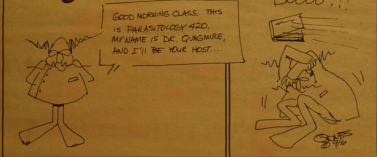 GOOD MORNING CLASS. THIS
IS PARASITOLOGY 420.
MY NAME IS DR. QUAGMIRE,
AND I'LL BE YOUR HOST....